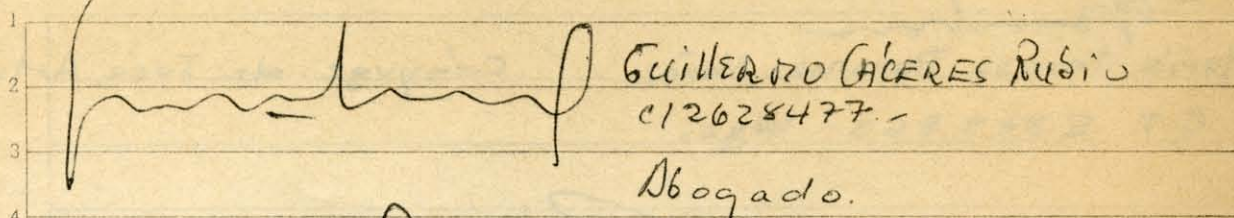 1
2
3
4
GUILLERMO CÁCERES RUBIO
CI 2628477.-
Abogado.